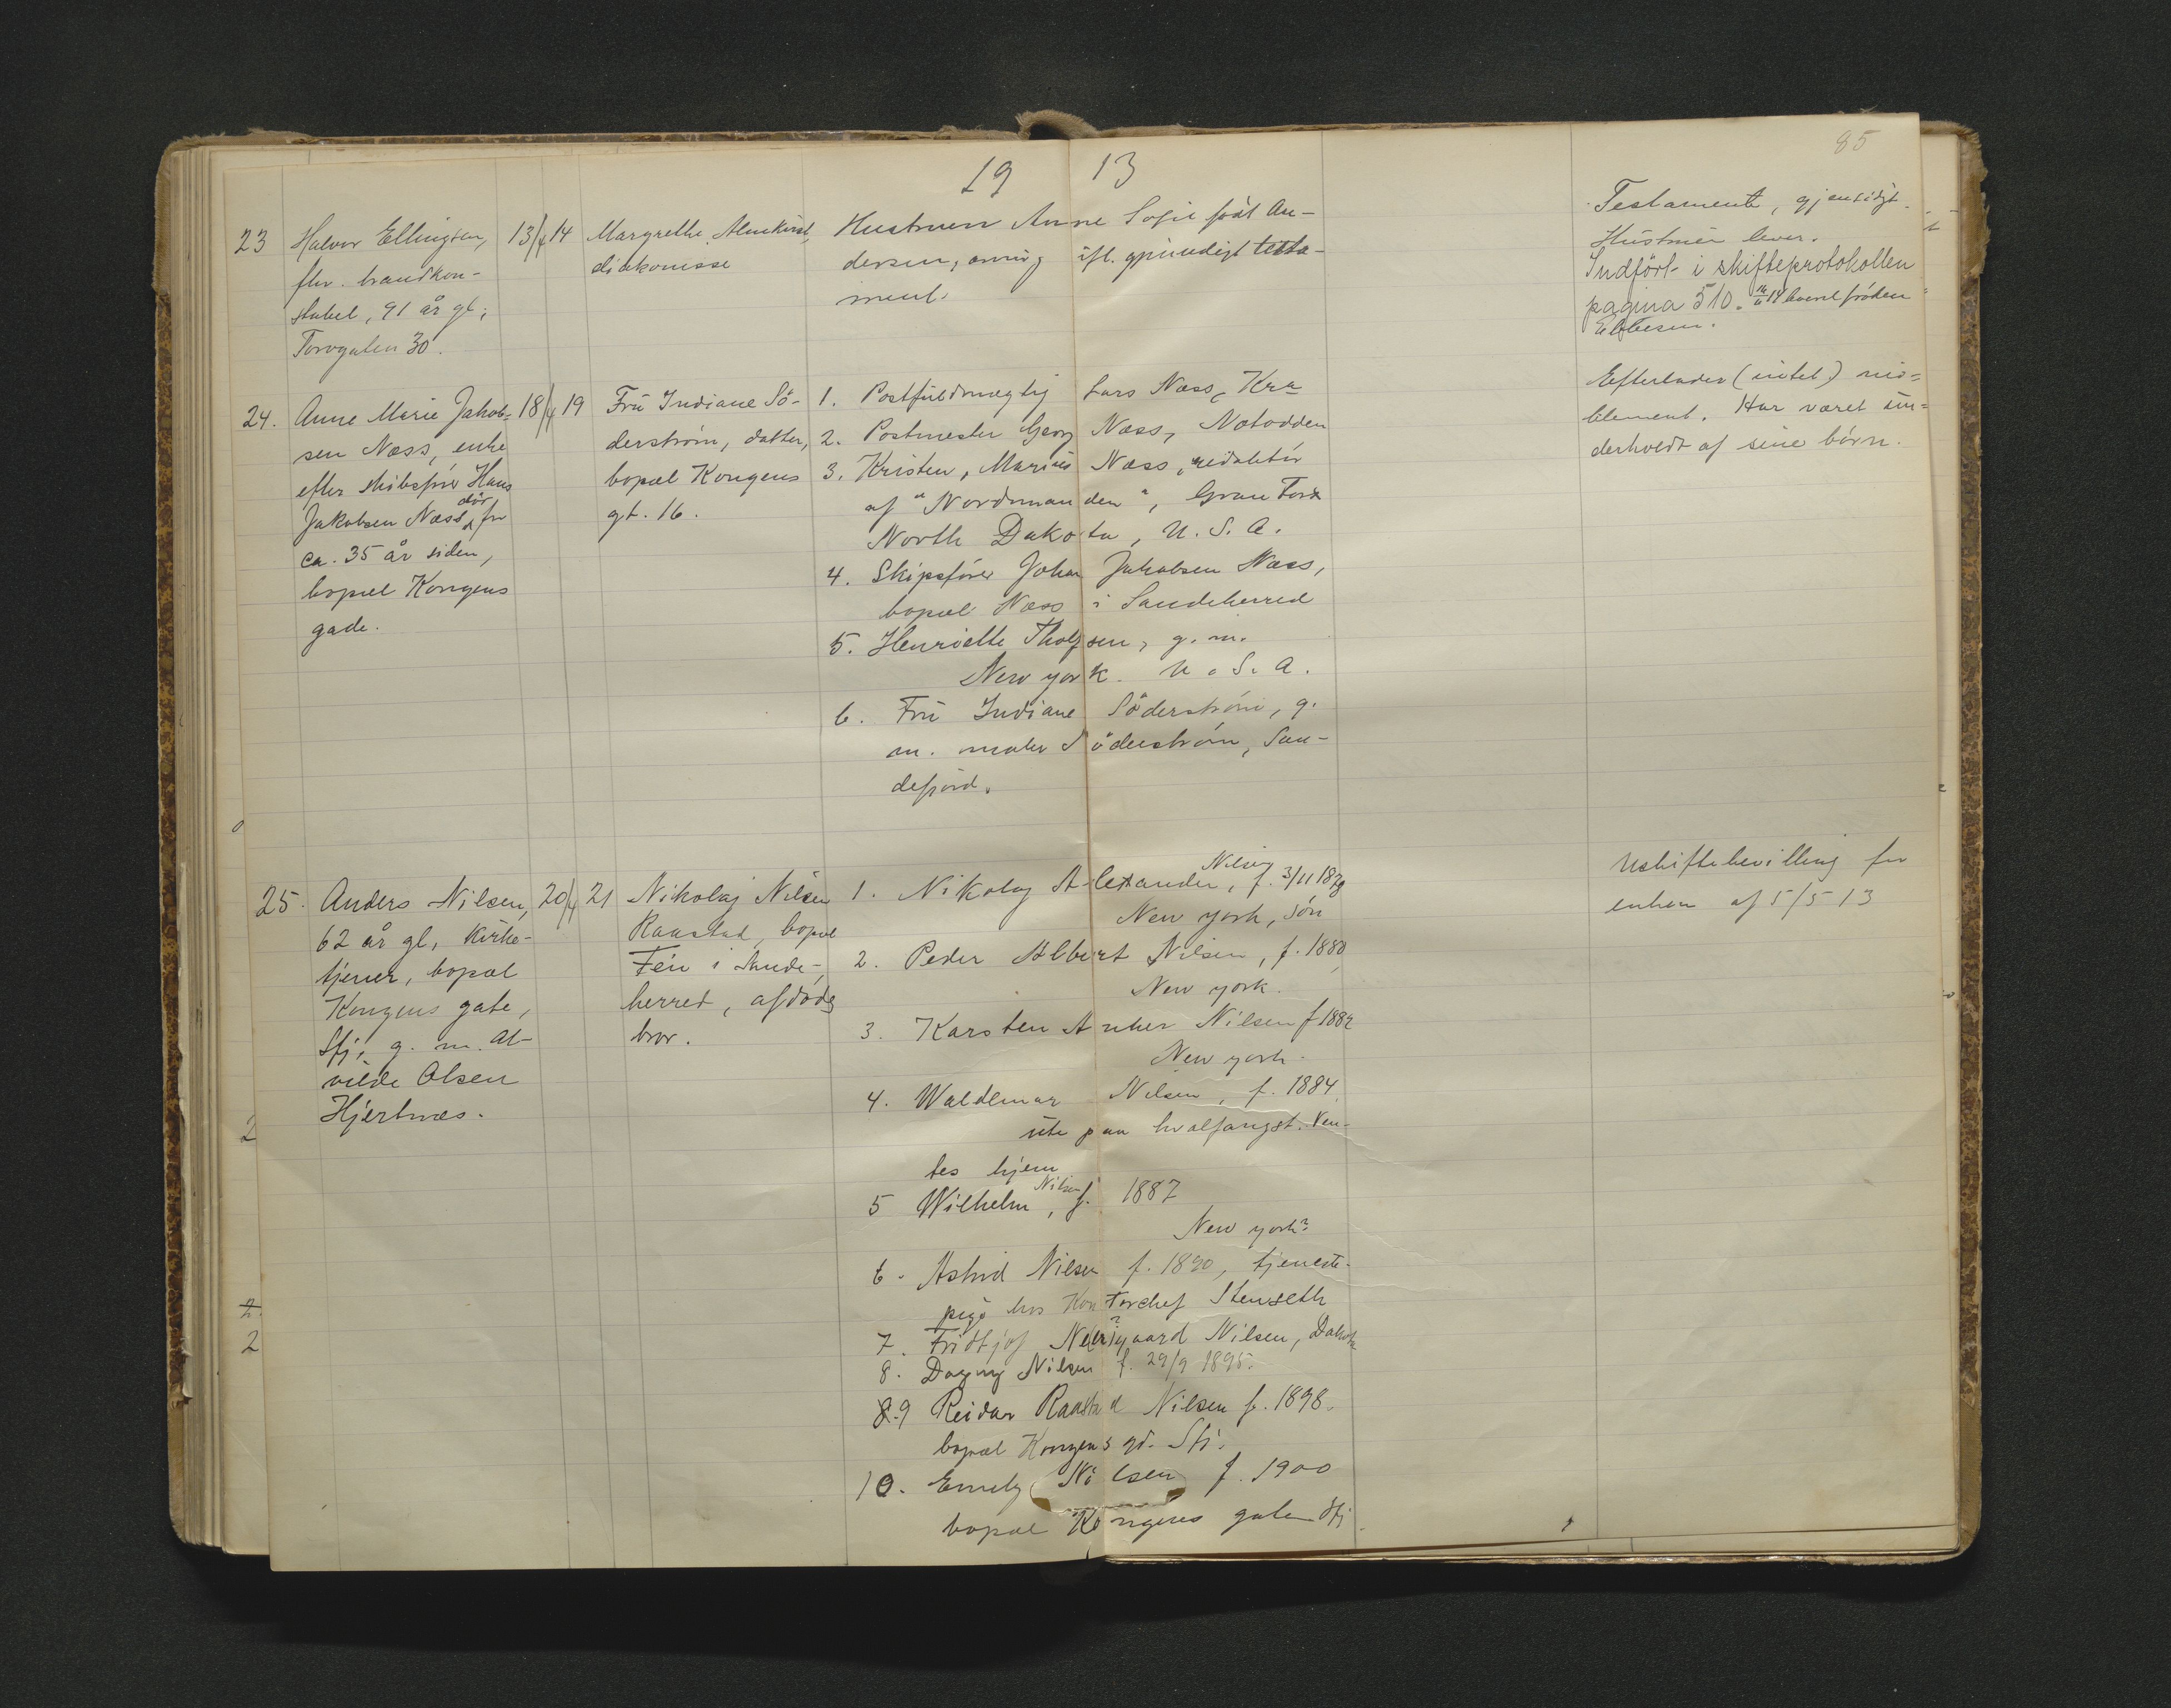 85
19 13
23 Halvor Ellingsen,
fhv. brandkon-
stabel, 91 år gl.,
Torvgaten 30.
13/4 14
Margrethe Almkvist,
diakonisse
Hustruen Anne Sofie født An-
dersen, arving ifl. gjensidigt testa-
ment.
Testament, gjensidigt.
Hustruen lever.
Indført i skifteprotokollen
pagina 510.
Ellefsen.
24. Anne Marie Jakob-
sen Næss, enke
efter skibsfører Hans
Jakobsen Næss, død for
ca. 35 år siden,
bopæl Kongens
gade.
18/4 19
Fru Indiane Sö-
derström, datter,
bopæl Kongens
gt. 16.
1. Postfuldmægtig Lars Næss, Kra
2. Postmester Georg Næss, Notodden
3. Kristen, Marius Næss, redaktör
af "Nordmanden", Gran Fork
North Dakota, U. S. A.
4. Skipsfører Johan Jakobsen Næss,
bopæl Næss i Sandeherred
5. Henriette Tholfsen, g. m.
New york. U. S. A.
6. Fru Indiane Söderström, g.
m. maler Söderström, San-
defjord.
Efterlader (intet) mö-
blement. Har været un-
derholdt af sine børn.
25. Anders Nilsen,
62 år gl., kirke-
tjener, bopæl
Kongens gate,
Sfj., g. m. Al-
vilde Olsen
Hjertnæs.
20/4 21
Nikolaj Nilsen
Raastad, bopæl
Fén i Sande-
herred, afdødes
bror.
1. Nikolay Alexander Nilsen, f. 3/11 1878
New york, søn
2. Peder Albert Nilsen, f. 1880
New york.
3. Karsten Anker Nilsen f 1882
New york.
4. Waldemar Nilsen, f. 1884
ute paa hvalfangst. Ven-
tes hjem
5 Wilhelm Nilsen, f. 1887
New york?
6. Astrid Nilsen f. 1890, tjeneste-
pige hos Kontorchef Stenseth
7. Fridtjof Nilsen, Dakota
8. Dagny Nilsen f. 29/9 1895.
8.9 Reidar Raastad Nilsen f. 1898.
bopæl Kongens gd. Sfj.
10. Emely Nilsen f. 1900
bopæl Kongens gate Sfj.
Uskiftebevilling for
enken af 5/5 13
2
2
2